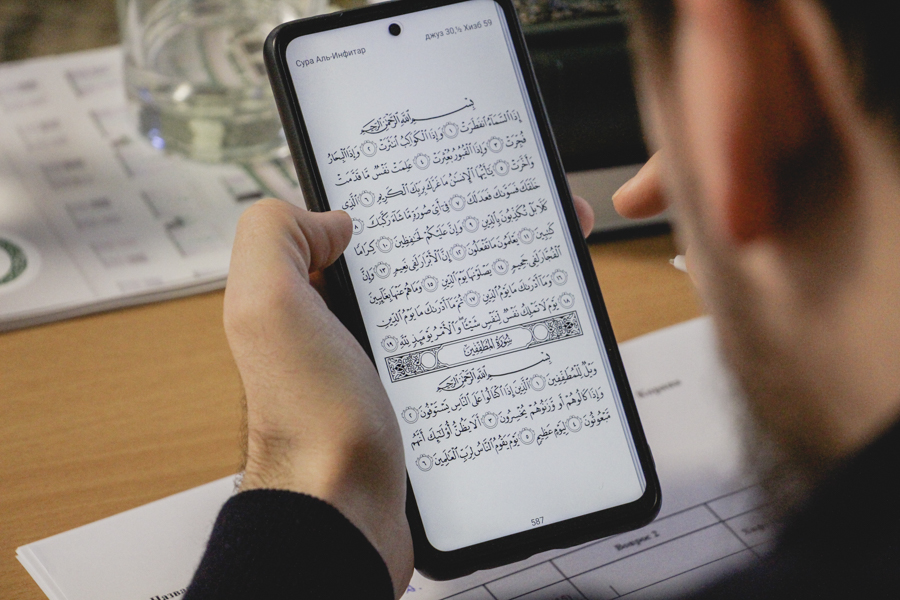 Сура Аль-Инфитар джуз 30,½ Хизб 59
بِسْمِ ٱللَّهِ ٱلرَّحْمَٰنِ ٱلرَّحِيمِ
إِذَا ٱلسَّمَآءُ ٱنفَطَرَتْ ١ وَإِذَا ٱلْكَوَاكِبُ ٱنتَثَرَتْ ٢ وَإِذَا ٱلْبِحَارُ
فُجِّرَتْ ٣ وَإِذَا ٱلْقُبُورُ بُعْثِرَتْ ٤ عَلِمَتْ نَفْسٌ مَّا قَدَّمَتْ
وَأَخَّرَتْ ٥ يَٰٓأَيُّهَا ٱلْإِنسَٰنُ مَا غَرَّكَ بِرَبِّكَ ٱلْكَرِيمِ ٦ ٱلَّذِى
خَلَقَكَ فَسَوَّىٰكَ فَعَدَلَكَ ٧ فِىٓ أَىِّ صُورَةٍ مَّا شَآءَ رَكَّبَكَ ٨
كَلَّا بَلْ تُكَذِّبُونَ بِٱلدِّينِ ٩ وَإِنَّ عَلَيْكُمْ لَحَٰفِظِينَ ١٠ كِرَامًا
كَٰتِبِينَ ١١ يَعْلَمُونَ مَا تَفْعَلُونَ ١٢ إِنَّ ٱلْأَبْرَارَ لَفِى نَعِيمٍ ١٣ وَإِنَّ
ٱلْفُجَّارَ لَفِى جَحِيمٍ ١٤ يَصْلَوْنَهَا يَوْمَ ٱلدِّينِ ١٥ وَمَا هُمْ عَنْهَا بِغَآئِبِينَ
١٦ وَمَآ أَدْرَىٰكَ مَا يَوْمُ ٱلدِّينِ ١٧ ثُمَّ مَآ أَدْرَىٰكَ مَا يَوْمُ ٱلدِّينِ
١٨ يَوْمَ لَا تَمْلِكُ نَفْسٌ لِّنَفْسٍ شَيْـًٔا وَٱلْأَمْرُ يَوْمَئِذٍ لِّلَّهِ ١٩
سُورَةُ ٱلْمُطَفِّفِينَ
بِسْمِ ٱللَّهِ ٱلرَّحْمَٰنِ ٱلرَّحِيمِ
وَيْلٌ لِّلْمُطَفِّفِينَ ١ ٱلَّذِينَ إِذَا ٱكْتَالُوا۟ عَلَى ٱلنَّاسِ يَسْتَوْفُونَ ٢
وَإِذَا كَالُوهُمْ أَو وَّزَنُوهُمْ يُخْسِرُونَ ٣ أَلَا يَظُنُّ أُو۟لَٰٓئِكَ أَنَّهُم
مَّبْعُوثُونَ ٤ لِيَوْمٍ عَظِيمٍ ٥ يَوْمَ يَقُومُ ٱلنَّاسُ لِرَبِّ ٱلْعَٰلَمِينَ ٦
587
Вопрос 2